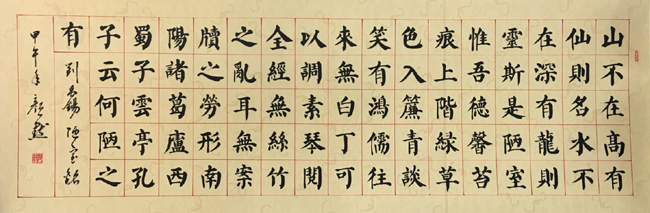 山不在高有
仙則名水不
在深有龍則
靈斯是陋室
惟吾德馨苔
痕上階緑草
色入簾青談
笑有鴻儒往
來無白丁可
以調素琴閱
全經無絲竹
之亂耳無案
牘之勞形南
陽諸葛廬西
蜀子雲亭孔
子云何陋之
有
劉禹錫陋室銘
甲午年